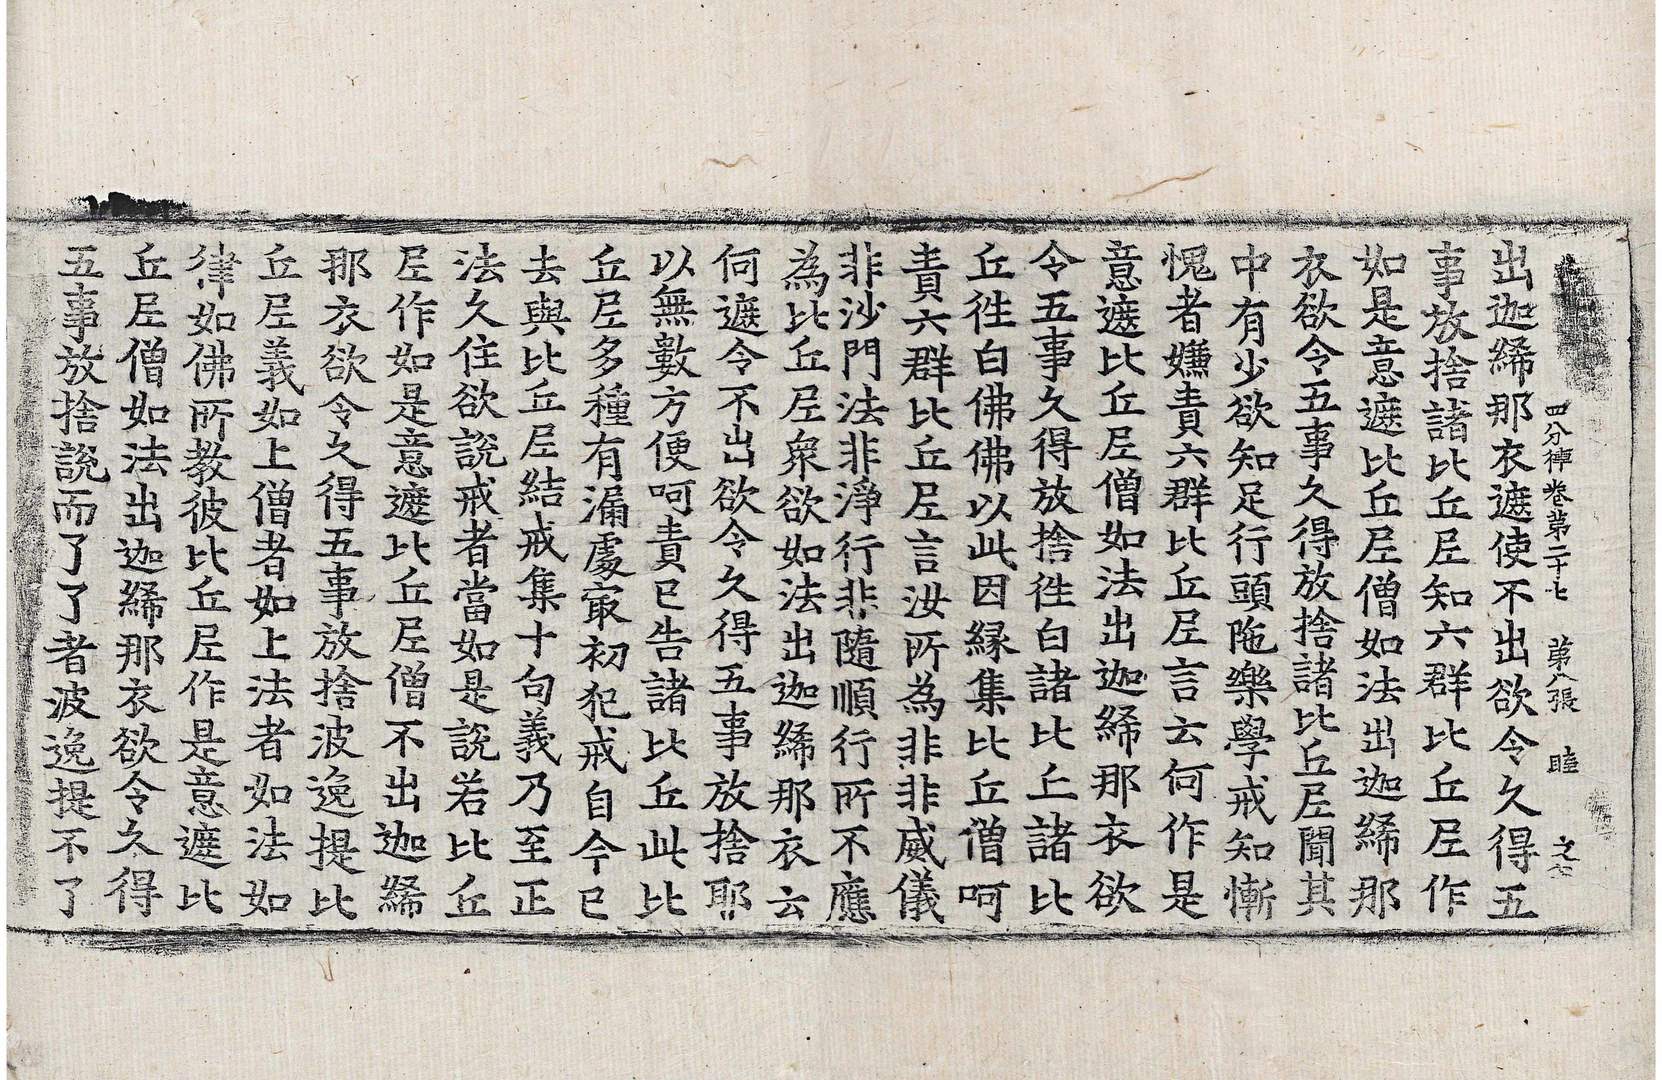 四分律卷第二十七 第八張 睦
出迦絺那衣遮使不出欲令久得五
事放捨諸比丘尼知六群比丘尼作
如是意遮比丘尼僧如法出迦絺那
衣欲令五事久得放捨諸比丘尼聞其
中有少欲知足行頭陁樂學戒知慚
愧者嫌責六群比丘尼言云何作是
意遮比丘尼僧如法出迦絺那衣欲
令五事久得放捨徃白諸比丘諸比
丘徃白佛佛以此因緣集比丘僧呵
責六群比丘尼言汝所為非非威儀
非沙門法非淨行非隨順行所不應
為比丘尼衆欲如法出迦絺那衣云
何遮令不出欲令久得五事放捨耶
以無數方便呵責已告諸比丘此比
丘尼多種有漏處㝡初犯戒自今已
去與比丘尼結戒集十句義乃至正
法久住欲說戒者當如是說若比丘
尼作如是意遮比丘尼僧不出迦絺
那衣欲令久得五事放捨波逸提比
丘尼義如上僧者如上法者如法如
律如佛所教彼比丘尼作是意遮比
丘尼僧如法出迦絺那衣欲令久得
五事放捨說而了了者波逸提不了